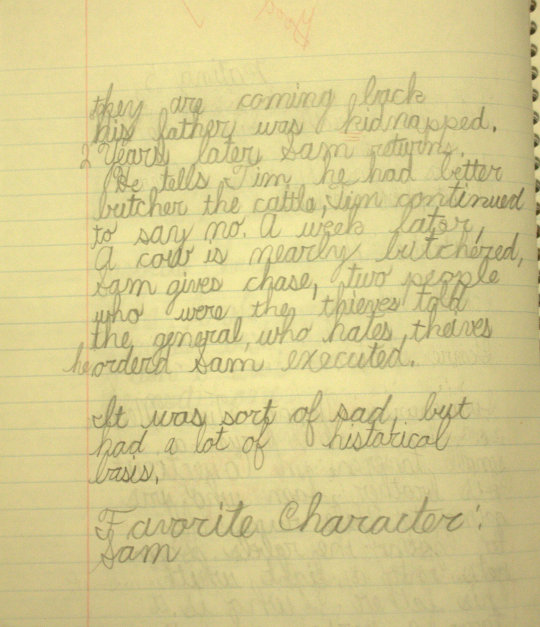 Good
they are coming back
his father was kidnapped.
2 Years later Sam returns.
He tells Tim he had better
butcher the cattle, Tim continued
to say no. A week later,
A cow is nearly butchered,
Sam gives chase, two people
who were the thieves told
the general, who hates, theives
he orderd Sam executed.
It was sort of sad, but
had a lot of histarical
basis.
Favorite Character:
Sam